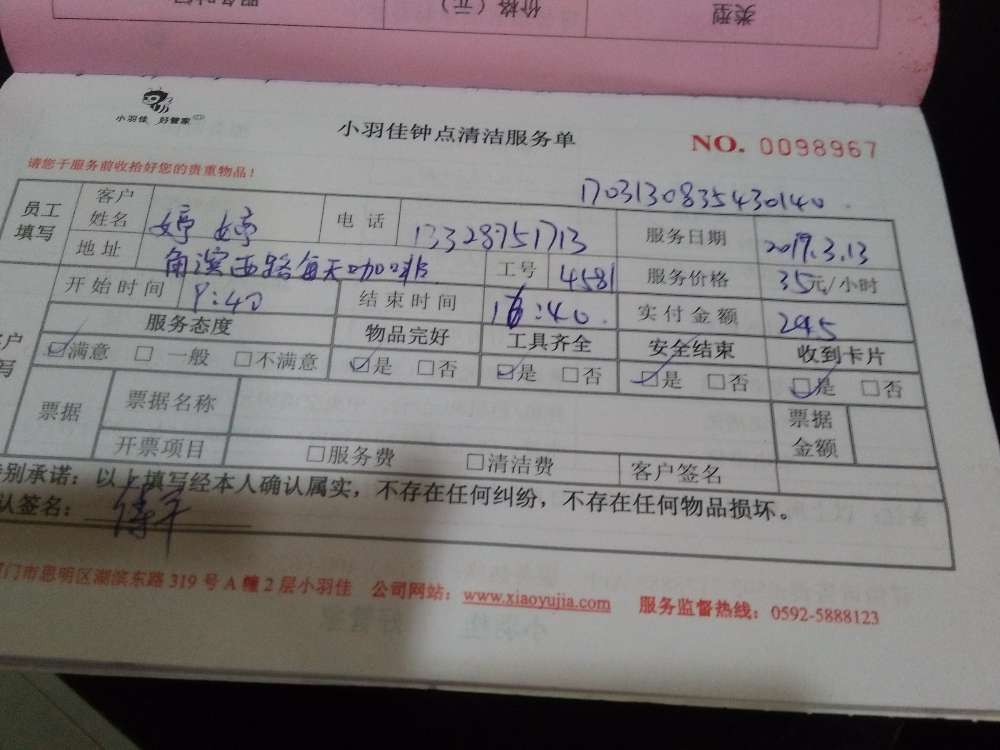 类型 价格（元） 服务时间
小羽佳 好管家
小羽佳钟点清洁服务单
NO. 0098967
请您于服务前收拾好您的贵重物品！
1703130835430140
员工填写 客户姓名 婷婷 电话 13328751713 服务日期 2017.3.13
地址 角滨西路每天咖啡 工号 4581 服务价格 35元/小时
开始时间 9:40 结束时间 16:40 实付金额 245
服务态度 物品完好 工具齐全 安全结束 收到卡片
☑满意 □一般 □不满意 ☑是 □否 ☑是 □否 ☑是 □否 ☑是 □否
票据 票据名称 票据金额
开票项目 □服务费 □清洁费 客户签名
别承诺：以上填写经本人确认属实，不存在任何纠纷，不存在任何物品损坏。
认签名：
门市思明区湖滨东路 319 号 A 幢 2 层小羽佳 公司网站：www.xiaoyujia.com 服务监督热线：0592-5888123